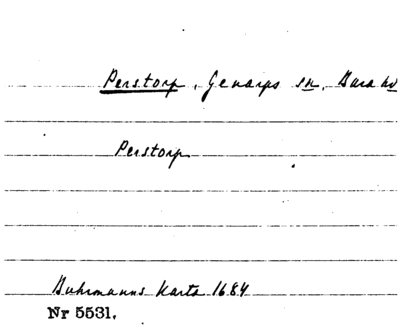 Perstorp, Genarps sn, Bara hd
Perstorp
Buhrmanns Karta 1684
Nr 5531.